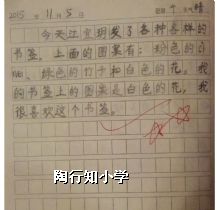 2015 年 11 月 5 日 星期 个 天气 晴
今天江宜玥发了各种各样的
书签,上面的图案有:粉色的
、绿色的竹子和白色的花。我
的书签上的图案是白色的花,我
很喜欢这个书签。
陶行知小学